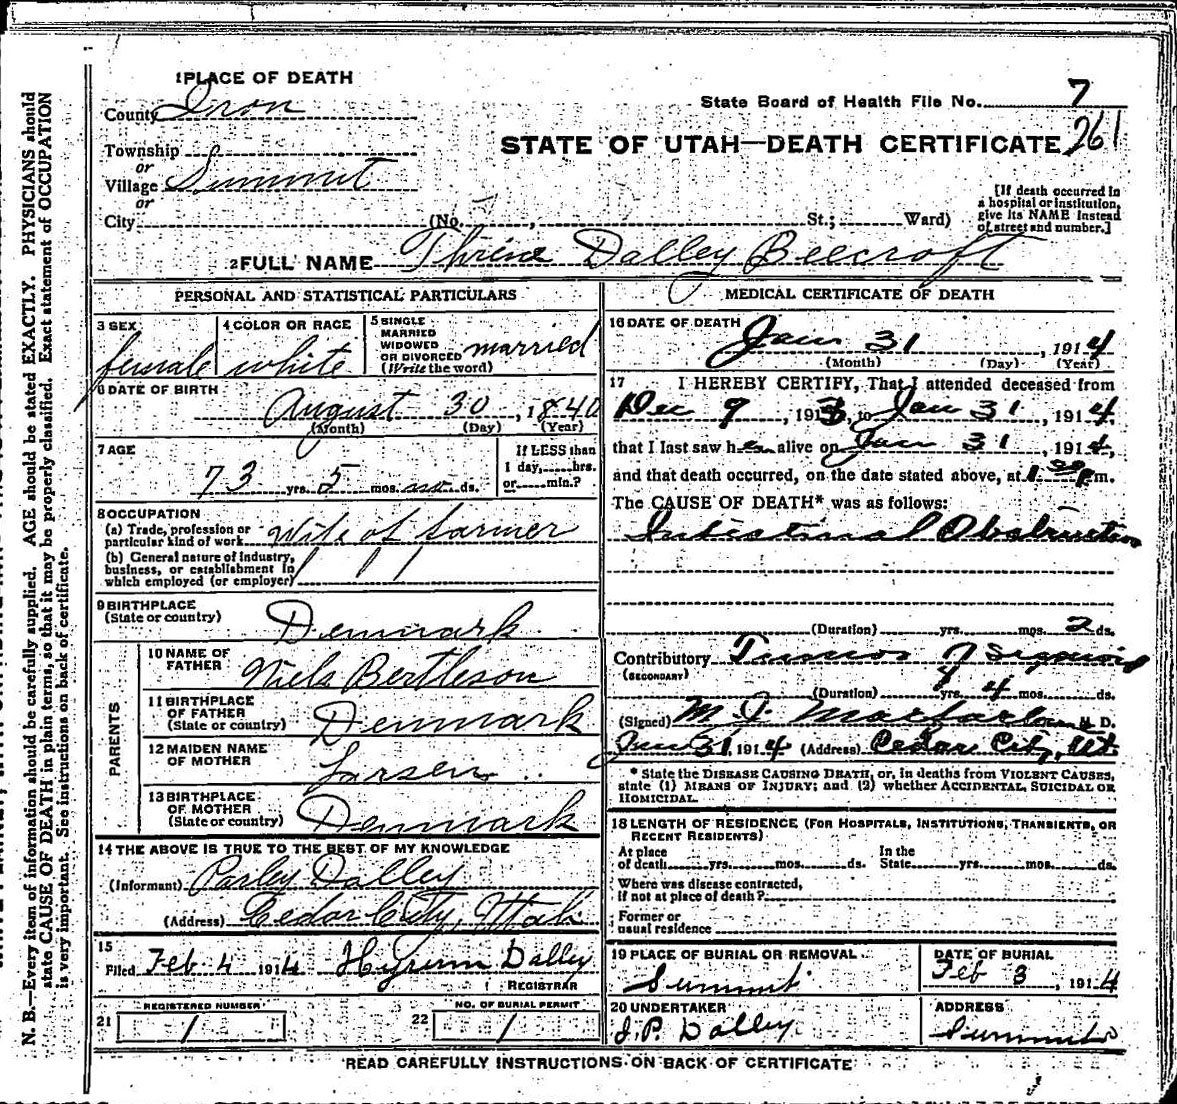 1 PLACE OF DEATH
County Iron
State Board of Health File No. 7
STATE OF UTAH—DEATH CERTIFICATE 261
Township
or
Village Summit
or
City (No. , St.; Ward)
[If death occurred in
a hospital or institution,
give its NAME instead
of street and number.]
2 FULL NAME Thrine Dalley Beecroft
PERSONAL AND STATISTICAL PARTICULARS
3 SEX
female
4 COLOR OR RACE
white
5 SINGLE
MARRIED
WIDOWED
OR DIVORCED
(Write the word)
married
6 DATE OF BIRTH
August 30, 1840
(Month) (Day) (Year)
7 AGE
73 yrs. 5 mos. no ds.
If LESS than
1 day, hrs.
or min.?
8 OCCUPATION
(a) Trade, profession or
particular kind of work Wife of farmer
(b) General nature of industry,
business, or establishment in
which employed (or employer)
9 BIRTHPLACE
(State or country) Denmark
PARENTS
10 NAME OF
FATHER Niels Bertleson
11 BIRTHPLACE
OF FATHER
(State or country) Denmark
12 MAIDEN NAME
OF MOTHER Larsen
13 BIRTHPLACE
OF MOTHER
(State or country) Denmark
14 THE ABOVE IS TRUE TO THE BEST OF MY KNOWLEDGE
(Informant) Parley Dalley
(Address) Cedar City, Utah
15
Filed Feb 4 1914 Hyrum Dalley
REGISTRAR
REGISTERED NUMBER
21 1
NO. OF BURIAL PERMIT
22 1
MEDICAL CERTIFICATE OF DEATH
16 DATE OF DEATH
Jan 31, 1914
(Month) (Day) (Year)
17 I HEREBY CERTIFY, That I attended deceased from
Dec 9, 1913, to Jan 31, 1914,
that I last saw her alive on Jan 31, 1914,
and that death occurred, on the date stated above, at 1 30 Pm.
The CAUSE OF DEATH* was as follows:
Intistinal Obstruction
(Duration) yrs. mos. 2 ds.
Contributory Tumor of Sigmoid
(SECONDARY)
(Duration) yrs. 4 mos. ds.
(Signed) M. J. Macfarlane M. D.
Jan 31, 1914 (Address) Cedar City, Ut.
* State the DISEASE CAUSING DEATH, or, in deaths from VIOLENT CAUSES,
state (1) MEANS OF INJURY; and (2) whether ACCIDENTAL, SUICIDAL OR
HOMICIDAL.
18 LENGTH OF RESIDENCE (FOR HOSPITALS, INSTITUTIONS, TRANSIENTS, OR
RECENT RESIDENTS)
At place
of death yrs. mos. ds.
In the
State yrs. mos. ds.
Where was disease contracted,
if not at place of death?
Former or
usual residence
19 PLACE OF BURIAL OR REMOVAL
Summit
DATE OF BURIAL
Feb 3, 1914
20 UNDERTAKER
J. P. Dalley
ADDRESS
Summit
READ CAREFULLY INSTRUCTIONS ON BACK OF CERTIFICATE
N. B.—Every item of information should be carefully supplied. AGE should be stated EXACTLY. PHYSICIANS should
state CAUSE OF DEATH in plain terms, so that it may be properly classified. Exact statement of OCCUPATION
is very important. See instructions on back of certificate.